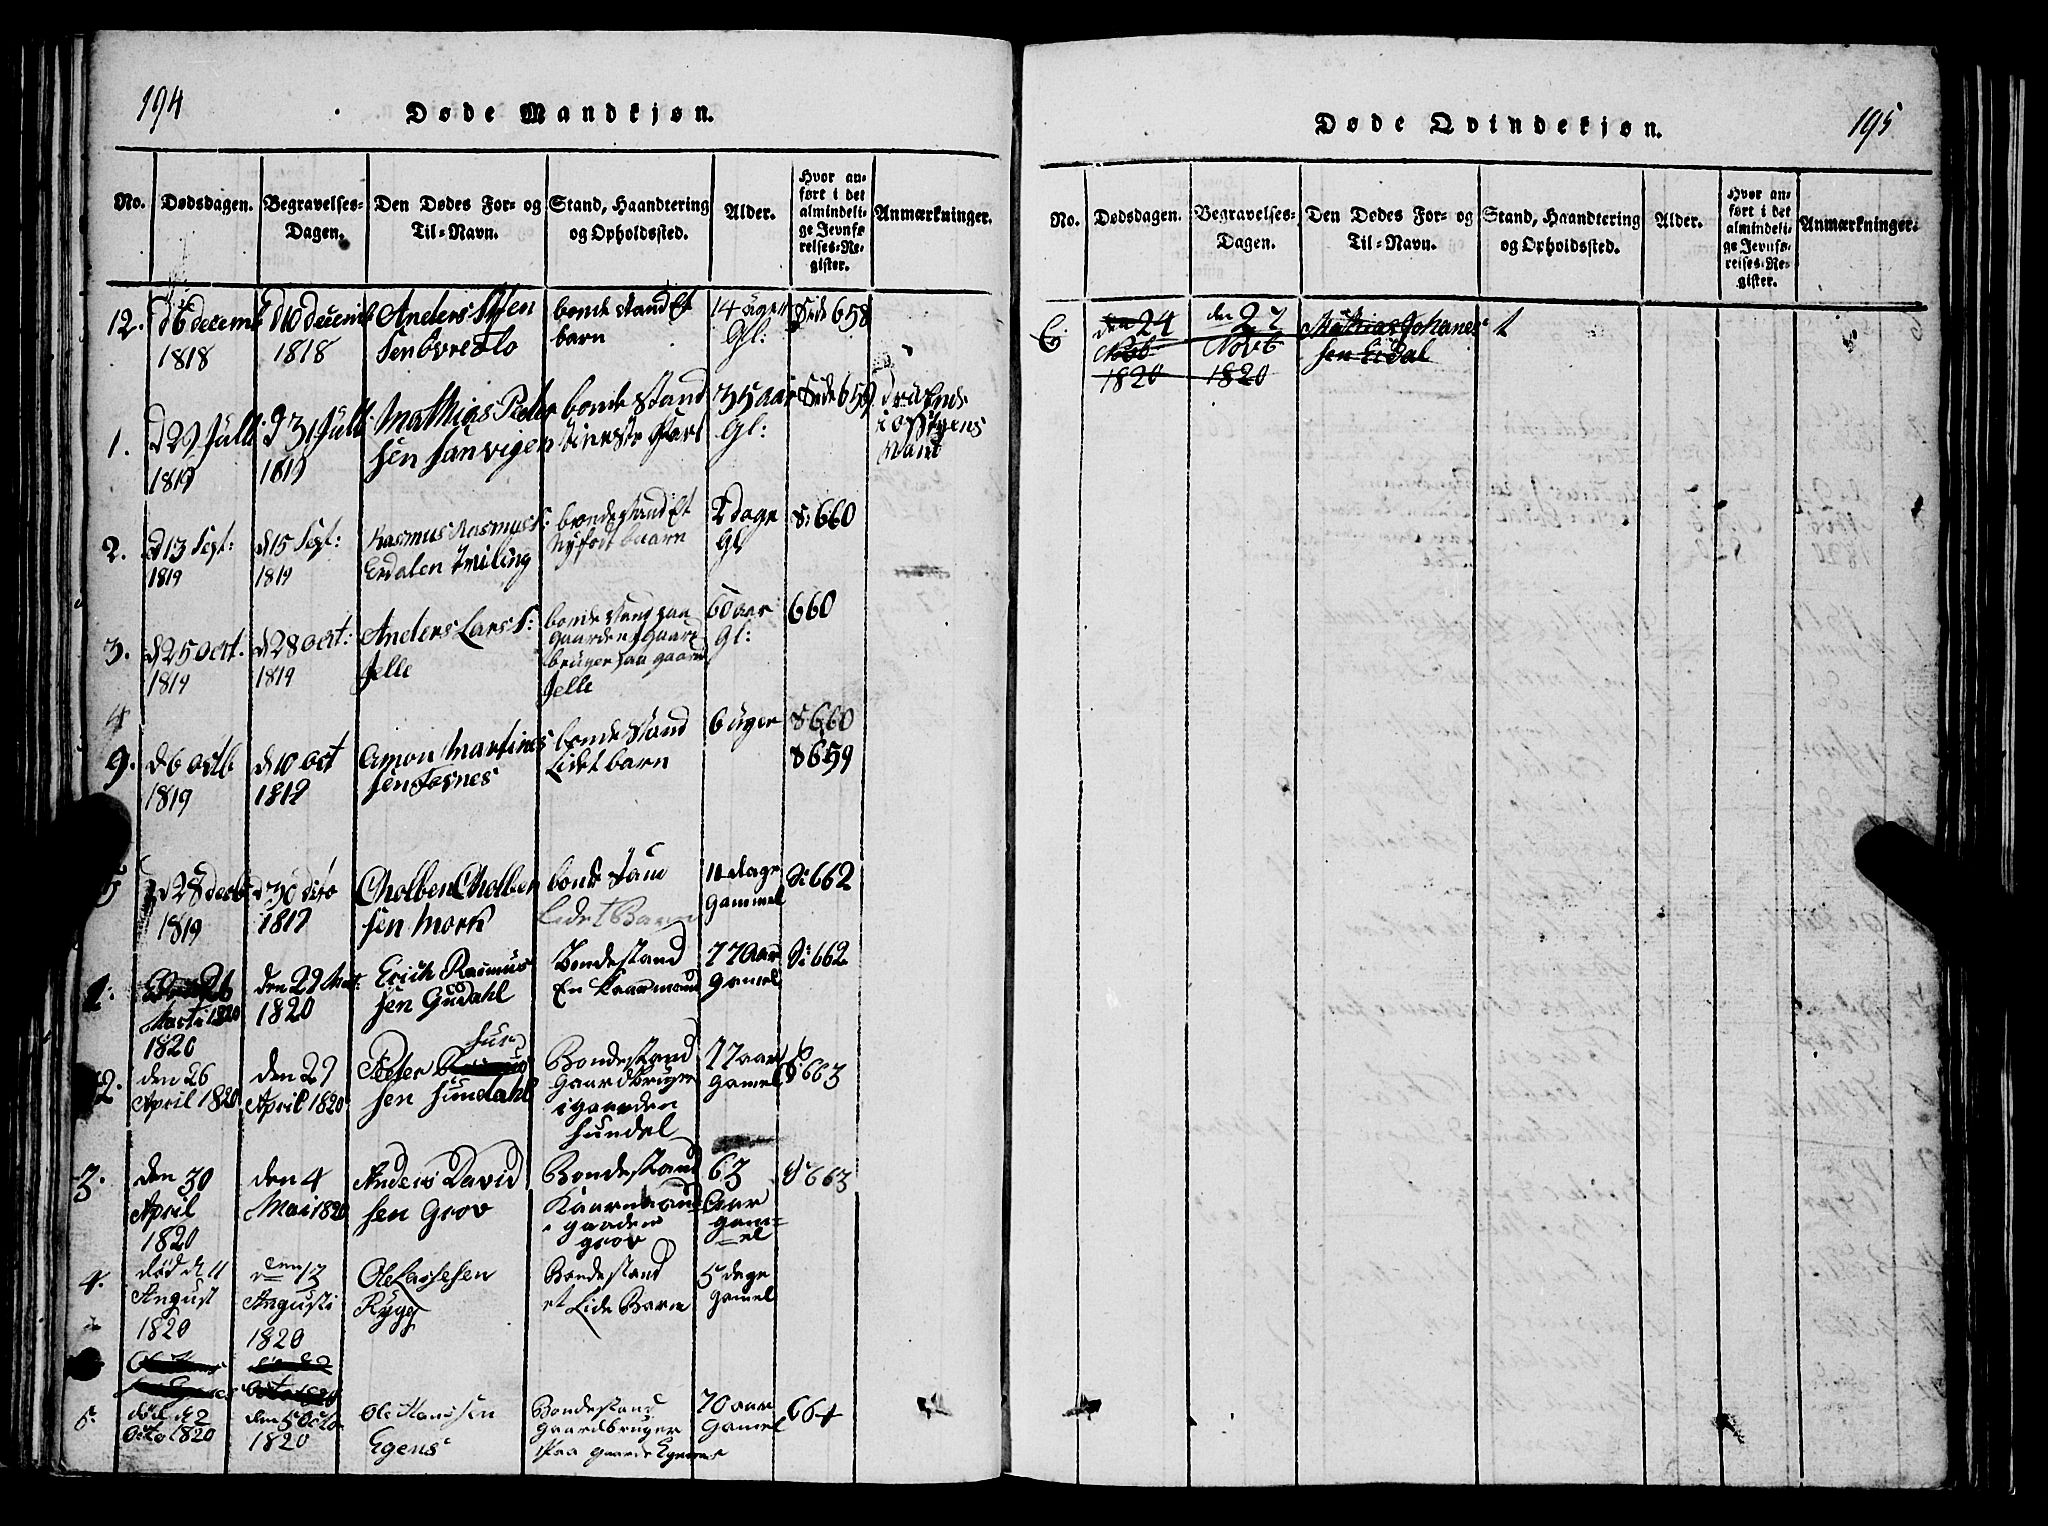 194
Døde Mandkjøn.
No.
Dødsdagen.
Begravelses-
Dagen.
Den Dødes For- og
Til-Navn.
Stand, Haandtering
og Opholdssted.
Alder.
Hvor an-
ført i det
almindeli-
ge Jevnfø-
relses-Re-
gister.
Anmærkninger.
12.
d 6 decemb
1818
d 10 decemb
1818
Anders
sen
bonde stand Et
barn
14 uger
Gl:
Side 658
1.
d 29 Julli
1819
d 31 Julli
1819
Mathias Peder
sen Sanvigen
bonde Stand
35 aar
Gl:
Side 659
2.
d 13 Sept:
1819
d 15 Sept:
1819
Rasmus Rasmus S:
Erdalen tviling
bonde stand Et
Nyfødt baarn
2 dage
Gl
S: 660
3.
d 25 oct.
1819
d 28 oct:
1819
Anders Lars S:
Jelle
bonde stand paa
gaarden gaard
bruger paa gaard
Jelle
60 aar
Gl:
660
4
9.
d 6 octb
1819
d 10 oct
1819
Amon Martines
sen Fosnes
bonde Stand
Lidet barn
6 uger
S 660
S 659
5
d 28 decb
1819
d 30 dito
1819
Cholben Cholben
sen Mork
bonde Stand
Lidet Barn
11 dage
gammel
S: 662
1.
26
Marti 1820
1820
den 29 Mart:
1820
Erich Rasmus
sen Gudahl
Bondestand
En Kaarmand
77 Aar
Gamel
S: 662
2.
den 26
April 1820
den 29
April 1820
Peder
sen Sundahl
Bondestand
Gaardbruger
i gaarden
Sundal
77 aar
Gamel
S 663
3.
den 30
April
1820
den 4
Mai 1820
Anders David
sen Grov
Bondestand
Kaarmand
gaaden
grov
63
Aar
gam=
=el
S: 663
4.
død d 11
August
1820
den 13
Augusti
1820
Ole Lassesen
Rygg
Bondestand
et Lide Barn
5 dage
gamel
5
død d 2
Octo 1820
den 5 Octo
1820
Ole Hanssen
Egens
Bondestand
gaardbruger
paa gaarde Egenes
70 aar
Gamel
664
195
Døde Qvindekjøn.
No.
Dødsdagen.
Begravelses-
Dagen.
Den Dødes For- og
Til-Navn.
Stand, Haandtering
og Opholdssted.
Alder.
Hvor an-
ført i det
almindeli-
ge Jevnfø-
relses-Re-
gister.
Anmærkninger.
6
den 24
Nob
1820
den 27
Novb
1820
Mathias Johanes
sen Eidal